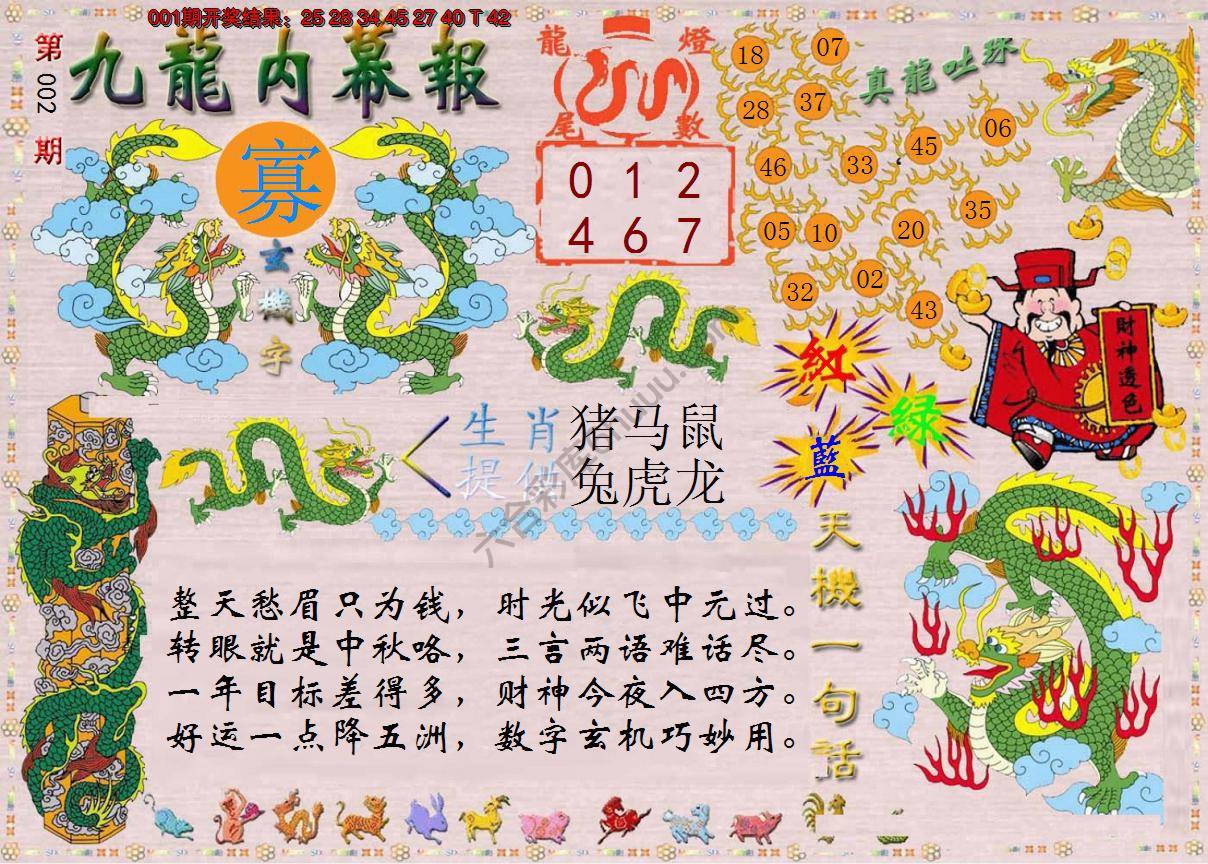 001期开奖结果：25 28 34 45 27 40 T 42
第
002
期
九龍内幕報
寡
玄
機
字
龍 燈
尾 數
0 1 2
4 6 7
真龍吐珠
18 07
28 37
45 06
46 33
35
05 10 20
32 02
43
財神透色
紅
綠
藍
生肖 猪马鼠
提供 兔虎龙
天機一句話
整天愁眉只为钱，时光似飞中元过。
转眼就是中秋咯，三言两语难话尽。
一年目标差得多，财神今夜入四方。
好运一点降五洲，数字玄机巧妙用。